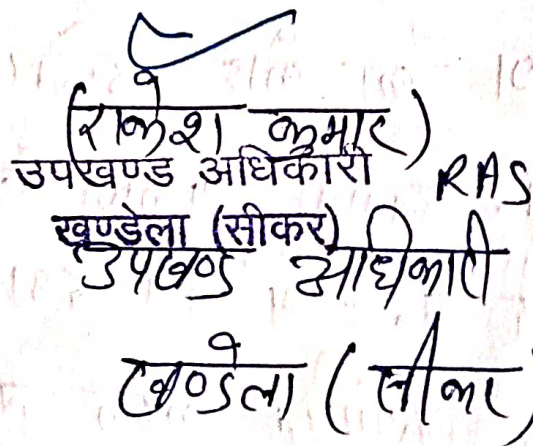 (राकेश कुमार)
उपखण्ड अधिकारी RAS
खण्डेला (सीकर)
उपखण्ड अधिकारी
खण्डेला (सीकर)